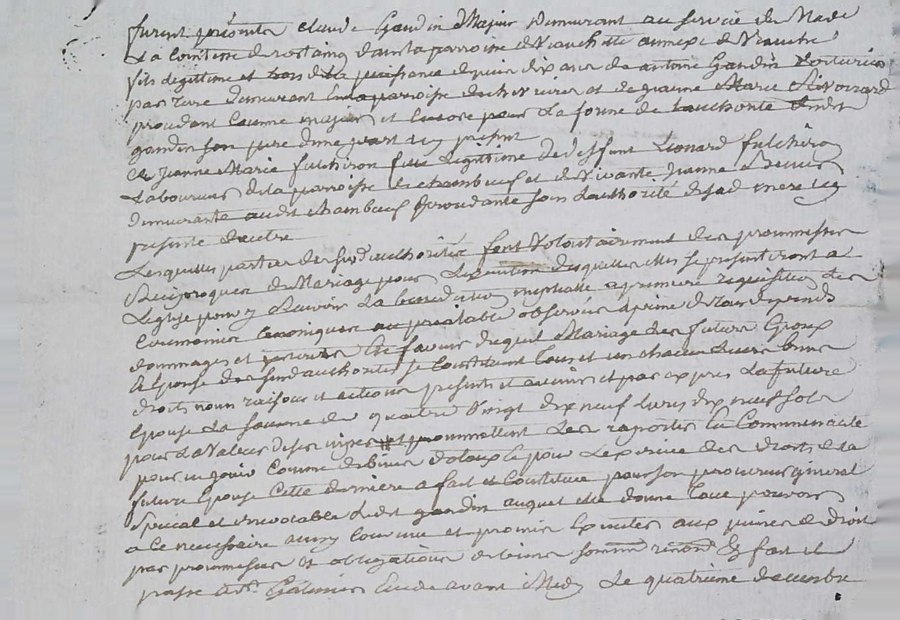 furent présents Claude Gandin Majeur demeurant au service de Made
La Comtesse de rostaing dans la parroisse de Veauchette annexe de Veauche
fils legittime et hors de la puissance depuis dix ans de antoine Gandin Voiturier
par Terre demeurant En la parroisse de et de jeanne Marie
procedant comme majeur et encore pour La forme de Lauthorité dudit
gandin son pere d'une part icy présent
Et Jeanne Marie fulchiron fille Legittime de deffunt Leonard fulchiron
Laboureur de la parroisse de chambeuf et de Vivante Jeanne
demeurante audit chambeuf procedante sous Lauthorité de sad mere icy
presente d'autre
Lesquelles parties de susd authorités font Volontairement des promesses
Reciproques de Mariage pour Lexecution desquelles elles se presenteront a
Leglise pour y recevoir La benediction nuptialle a premiere requisition les
Ceremonies Canoniques au prealable observées a peine de tous depends
dommages et interets En faveur duquel Mariage les futurs Epoux
& Epouse des susd authorités se Constituent tous et un chacun Leurs biens
droits noms raisons et actions presents et avenir et par expres La future
Epouse La somme de quatre Vingt dix neuf livres dix neuf sols
pour La Valeur de ses nipes et promettent Les raporter La Communauté
pour en jouir Comme de biens dotaux et pour Lexercice des droits de la
future Epouse Cette derniere a fait et Constitue pour son procureur general
special et irrevocable Ledit gandin auquel elle donne tous pouvoirs
a ce necessaire ainsy Convenu et promis Executer aux peines de droit
par promesses et obligations de biens soumn renond Et fait et
passé a St Galmier Etude avant Midy Le quatrieme decembre